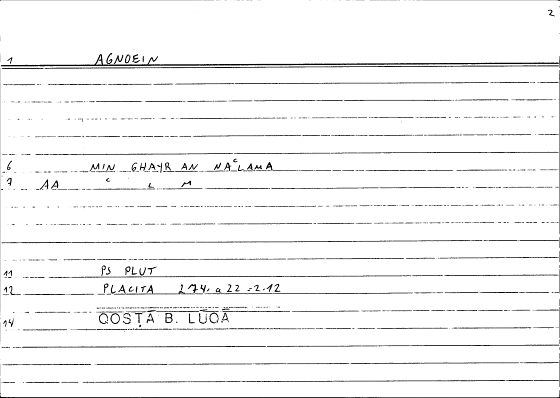 2
1 AGNOEIN
6 MIN GHAYR AN NAᶜLAMA
7 AA ᶜ L M
11 PS PLUT
12 PLACITA 274. a 22 = 2.12
14 QOSṬĀ B. LŪQĀ